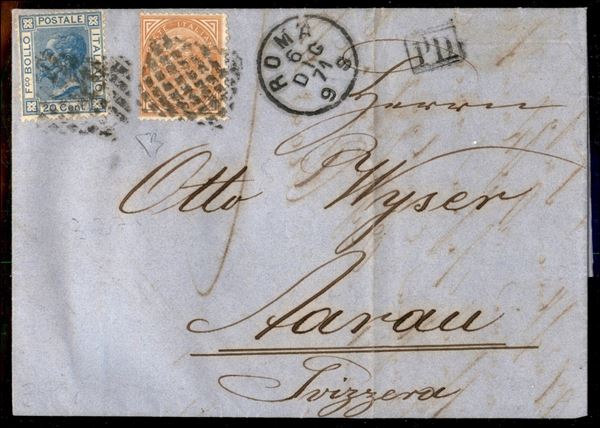 Fco BOLLO
POSTALE
ITALIANO
20 Cent
ROMA
6
DIC
71
9 S
P.D.
Herrn
Otto Wyser
Aarau
Svizzera